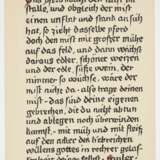 stalle, und obgleich der mist
einen unflat und stank an sich
hat, so zieht dasselbe pferd
doch den mist mit großer mühe
auf das feld, und dann wächst
daraus edler, schöner weizen
und der edle, süße wein, der
nimmer so wüchse, wäre der
mist nicht da. also trage deinen
mist - das sind deine eigenen
gebrechen, die du nicht abtun
und ablegen noch überwinden
kannst - mit müh und mit fleiß
auf den acker des liebreichen
willens gottes in rechter gelas-
senheit deiner selbst. tauler